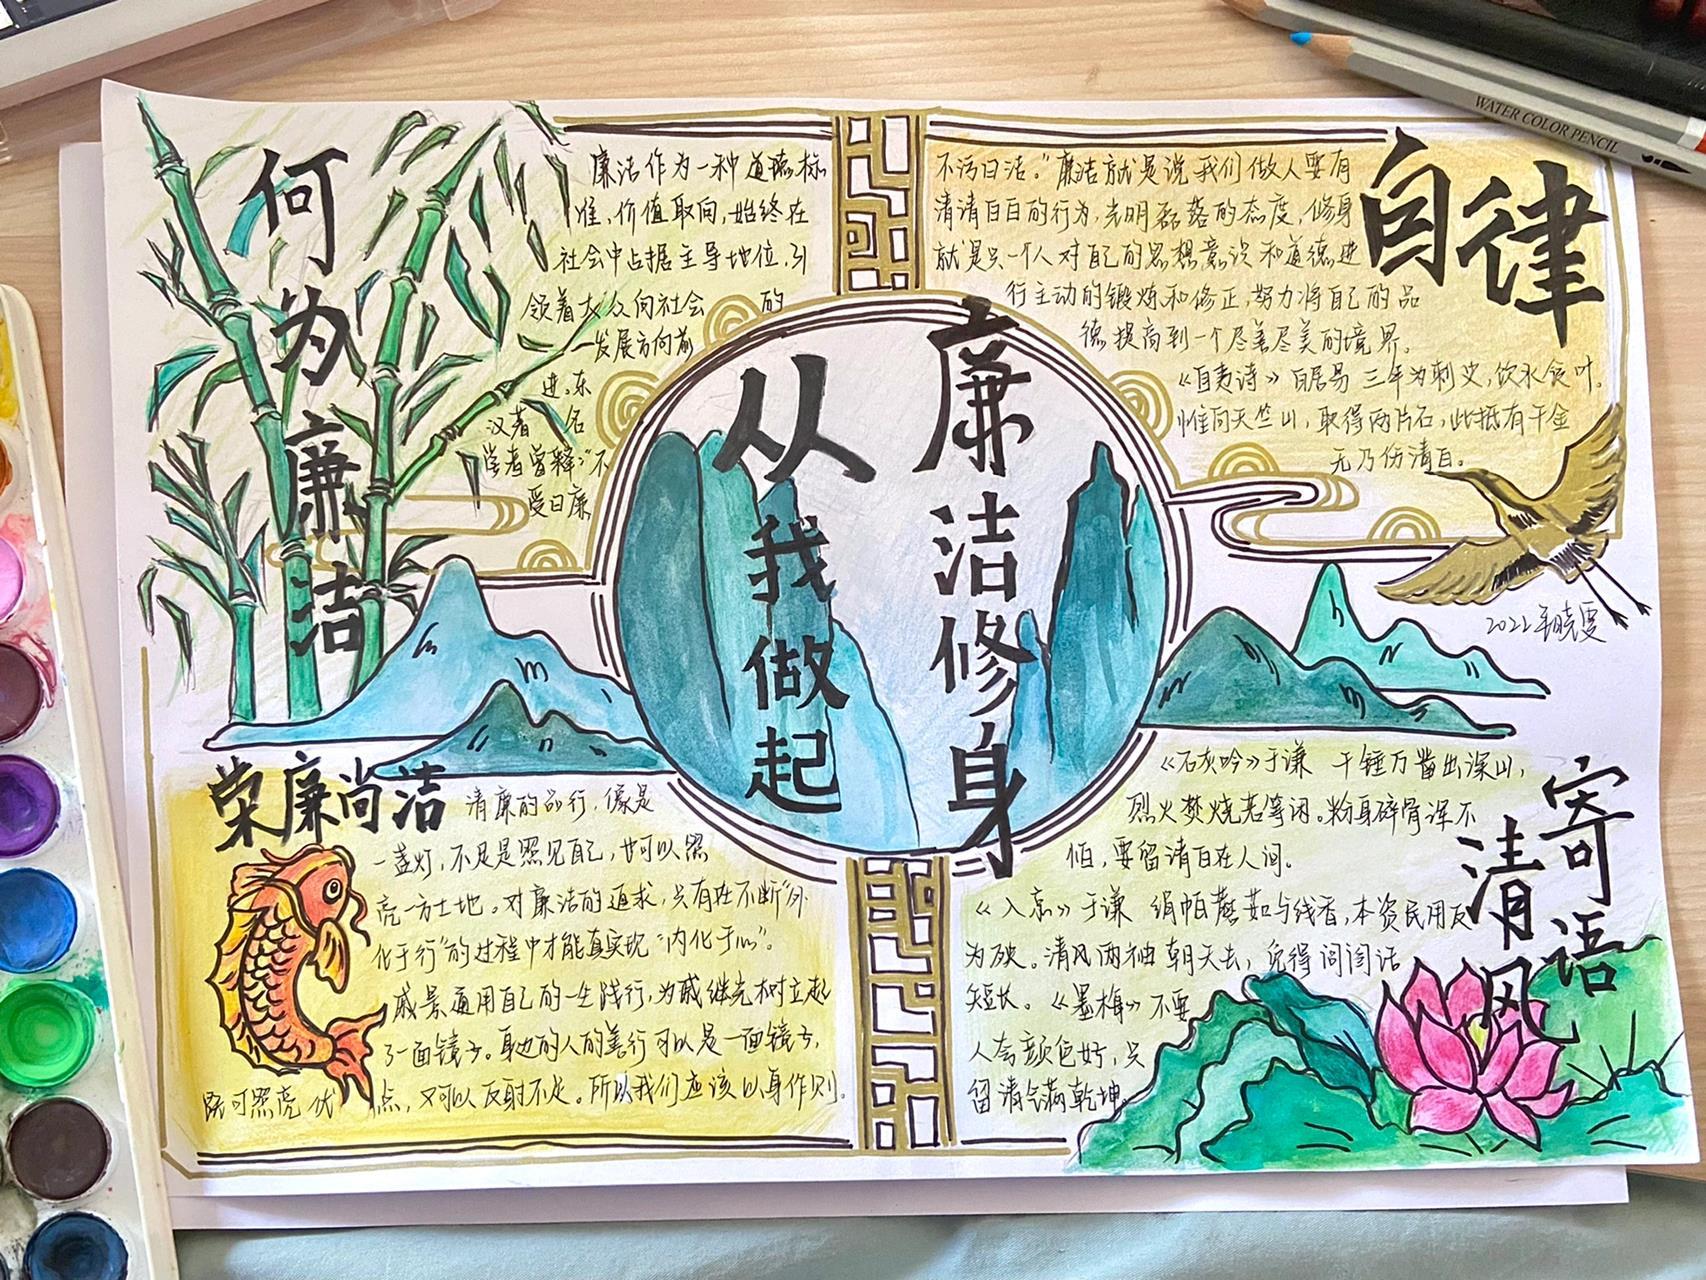 何为廉洁
廉洁作为一种道德标
准，价值取向，始终在
社会中占据主导地位，引
领着大众向社会的
一发展方向前
进。东
汉著名
学者曾释："不
受曰廉
不污曰洁。"廉洁就是说我们做人要有
清清白白的行为，光明磊落的态度，修身
就是只一个人对自己的思想意识和道德进
行主动的锻炼和修正，努力将自己的品
德提高到一个尽善尽美的境界。
《自责诗》白居易 三年为刺史，饮水食叶。
惟向天竺山，取得两片石，此抵有千金
无乃伤清白。
自律
廉洁修身
从我做起
2022
荣廉尚洁
清廉的品行，像是
一盏灯，不足是照见自己，也可以照
亮一方土地。对廉洁的追求，只有在不断"外
化于行"的过程中才能真实现"内化于心"。
戚景通用自己的一生践行，为戚继光树立起
了一面镜子。身边的人的善行可以是一面镜子，
既可照亮优点，又可以反射不足。所以我们应该以身作则。
《石灰吟》于谦 千锤万凿出深山，
烈火焚烧若等闲。粉身碎骨浑不
怕，要留清白在人间。
《入京》于谦 绢帕蘑菇与线香，本资民用反
为殃。清风两袖朝天去，免得闾阎话
短长。《墨梅》不要
人夸颜色好，只
留清气满乾坤。
寄语
清风
WATER COLOR PENCIL